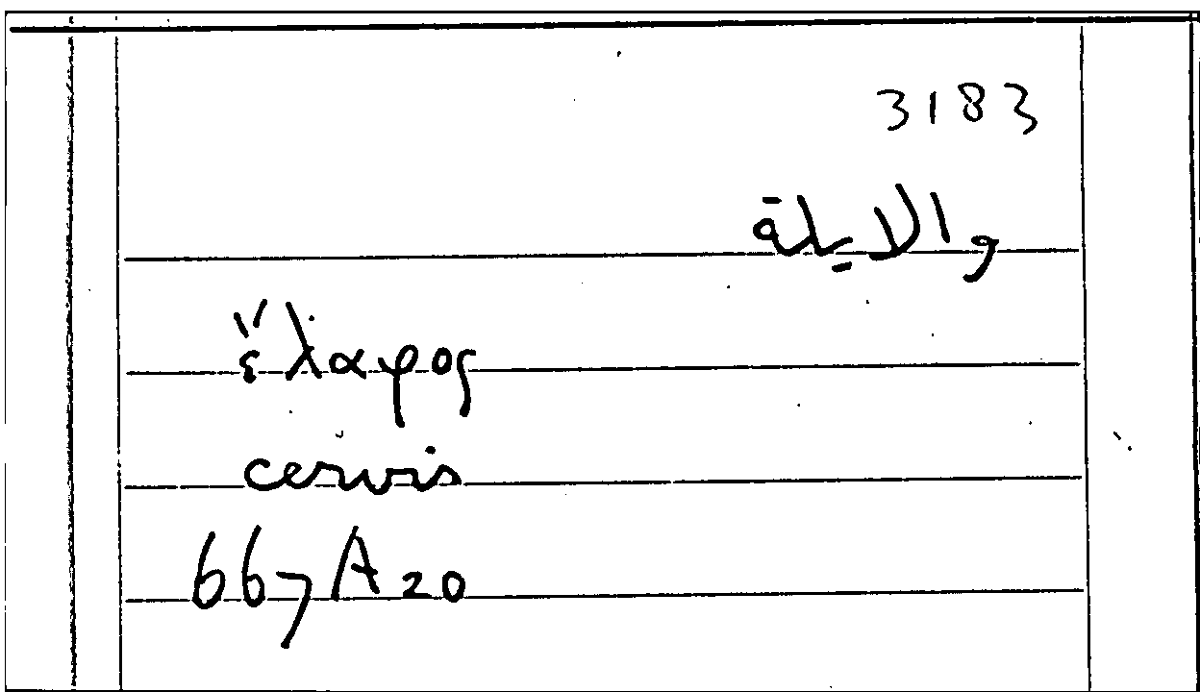 3183
والايلة
ἔλαφος
cervis
667 A 20